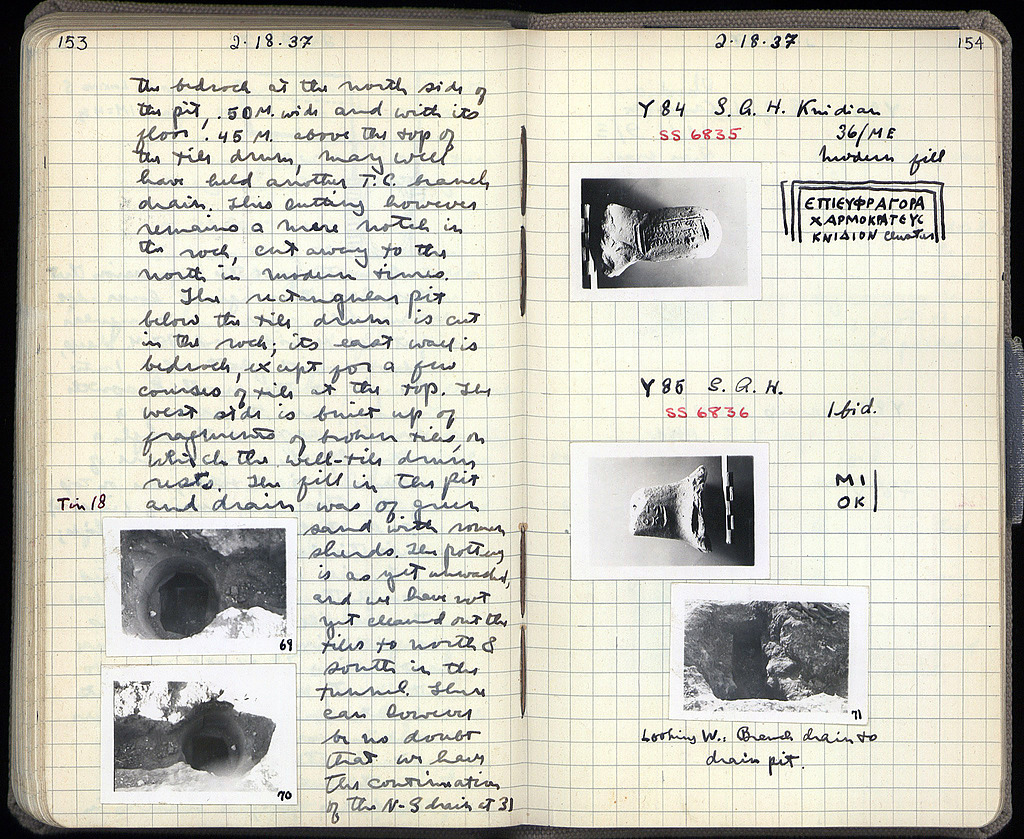 153
2·18·37
the bedrock at the north side of
the pit, .50 M. wide and with its
floor .45 M. above the top of
the tile drum, may well
have held another T.C. branch
drain. This cutting however
remains a mere notch in
the rock, cut away to the
north in modern times.
The rectangular pit
below the tile drum is cut
in the rock; its east wall is
bedrock, except for a few
courses of tile at the top. The
west side is built up of
fragments of broken tiles, on
which the well-tile drum
rests. The fill in the pit
Tin 18
and drain was of green
sand with roman
sherds. The pottery
is as yet unwashed,
and we have not
yet cleaned out the
tiles to north &
south in the
tunnel. There
can however
be no doubt
that we have
the continuation
of the N-S drain at 31
69
70
2·18·37
154
Y 84 S.A.H. Knidian
SS 6835
36/ME
modern fill
ΕΠΙΕΥΦΡΑΓΟΡΑ
ΧΑΡΜΟΚΡΑΤΕΥC
ΚΝΙΔΙΟΝ cluster
Y 85 S.A.H.
SS 6836
Ibid.
ΜΙ
ΟΚ
71
Looking W.: Branch drain to
drain pit.